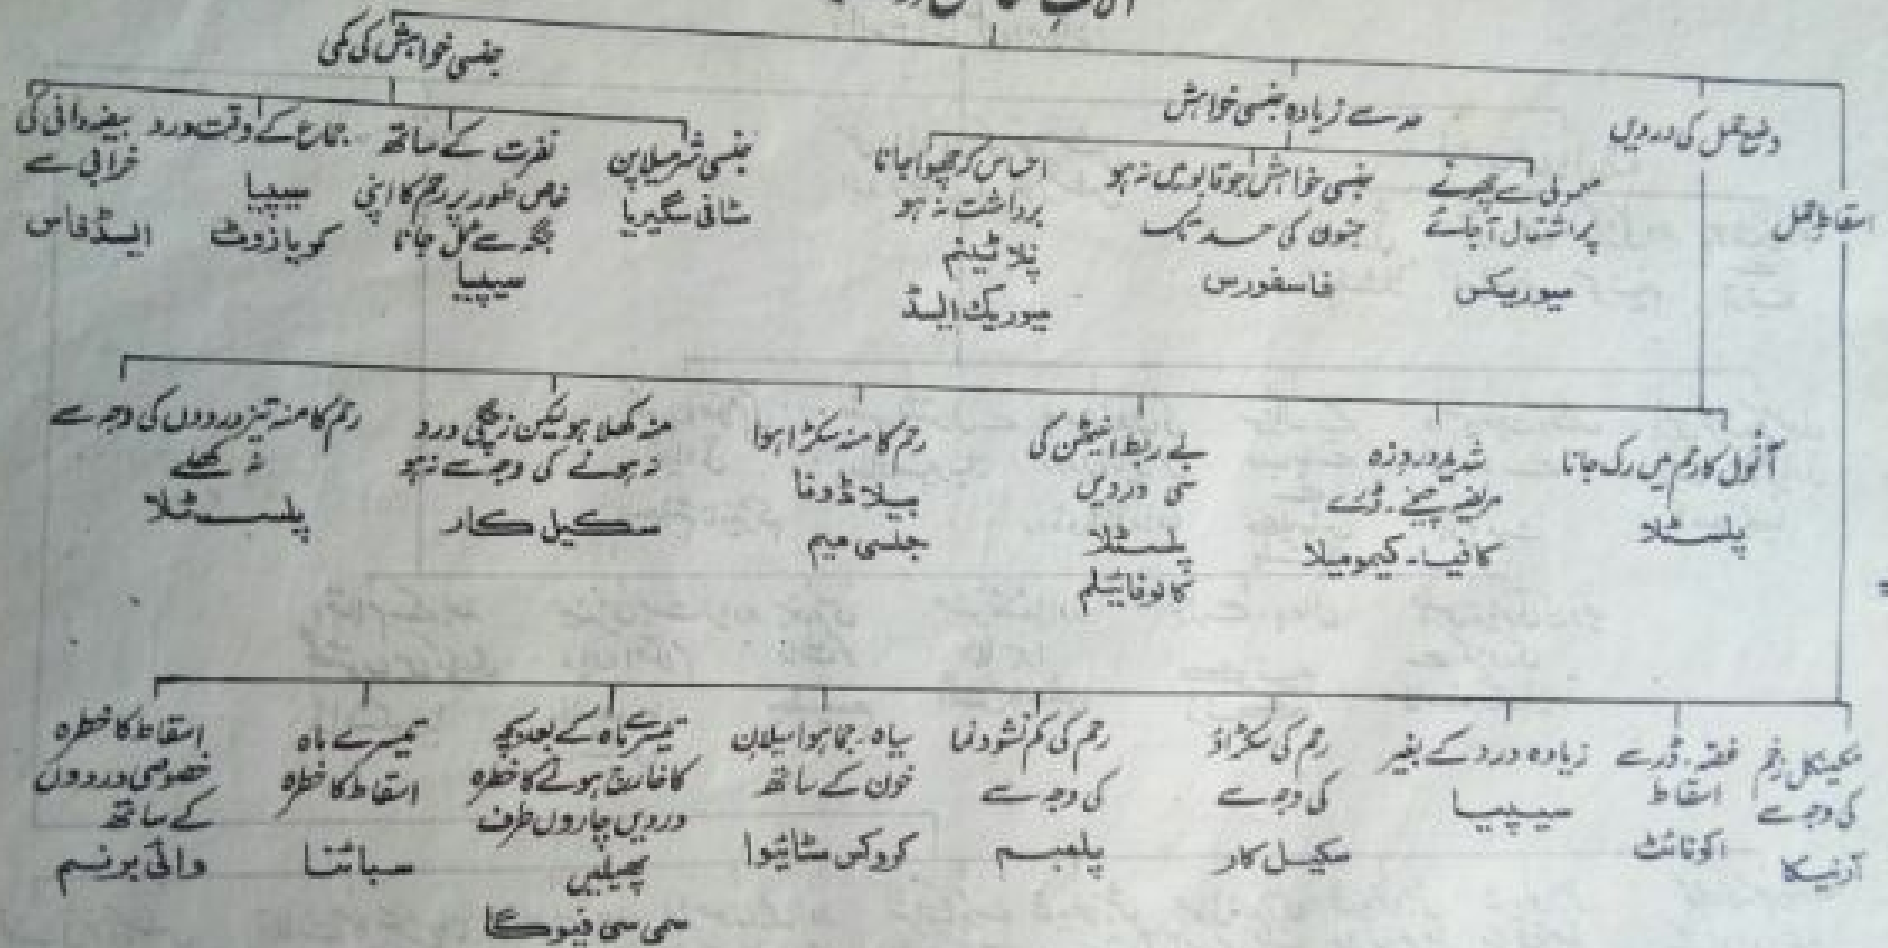 جنسی خواہش کی کمی
حد سے زیادہ جنسی خواہش
وضع حمل کی دردیں
اسقاط حمل
معمولی سے چھونے
پر اشتعال آ جائے
میوریکس
جنسی خواہش جو قابو میں نہ ہو
جنون کی حد تک
فاسفورس
احساس کہ چھوا جانا
برداشت نہ ہو
پلاٹینم
میوریک ایسڈ
جنسی شرمیلاپن
سٹافی سگیریا
نفرت کے ساتھ
خاص طور پر رحم کا اپنی
جگہ سے ٹل جانا
سیپیا
جماع کے وقت درد
سیپیا
کریازوٹ
بیضہ دانی کی
خرابی سے
ایسڈ فاس
آنول کا رحم میں رک جانا
پلسٹلا
شدید دردزہ
مریضہ چیخے ۔ ڈرے
کافیا ۔ کیمومیلا
بے ربط اینٹھن کی
سی دردیں
پلسٹلا
کالوفائیلم
رحم کا منہ سکڑا ہوا
بیلاڈونا
جلسی میم
منہ کھلا ہو لیکن زچگی درد
نہ ہونے کی وجہ سے نہ ہو
سکیل کار
رحم کا منہ تیز دردوں کی وجہ سے
نہ کھلے
پلسٹلا
مکینیکل زخم
کی وجہ سے
آرنیکا
غصہ ۔ ڈر سے
اسقاط
اکونائٹ
زیادہ درد کے بغیر
سیپیا
رحم کی سکڑاؤ
کی وجہ سے
سکیل کار
رحم کی کم نشوونما
کی وجہ سے
پلمبم
سیاہ ۔ جما ہوا سیلان
خون کے ساتھ
کروکس سٹائیوا
تیسرے ماہ کے بعد بچہ
کا خارج ہونے کا خطرہ
دردیں چاروں طرف
پھیلیں
سمی سی فیوگا
تیسرے ماہ
اسقاط کا خطرہ
سبائنا
اسقاط کا خطرہ
خصوصی دردوں
کے ساتھ
وائی برنم